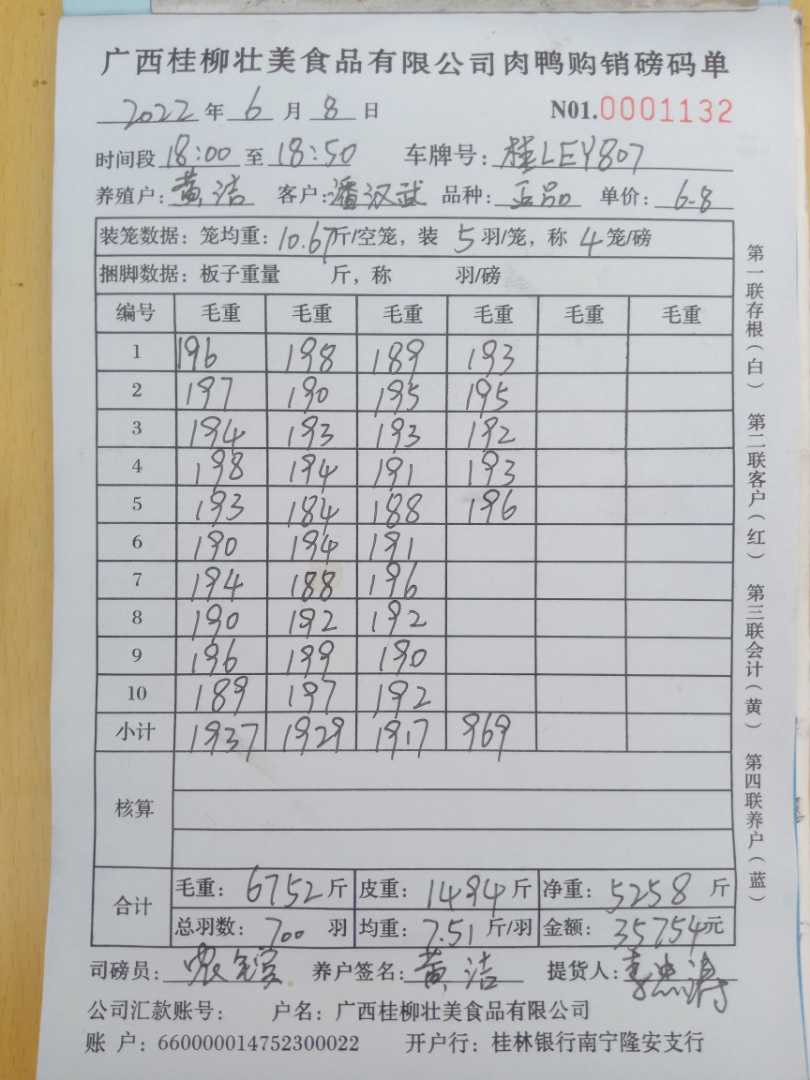 广西桂柳壮美食品有限公司肉鸭购销磅码单
2022 年 6 月 8 日 N01.0001132
时间段 18:00 至 18:50 车牌号: 桂LEY807
养殖户: 黄洁 客户: 潘汉武 品种: 正品 单价: 6.8
装笼数据: 笼均重: 10.67斤/空笼, 装 5 羽/笼, 称 4 笼/磅
捆脚数据: 板子重量 斤, 称 羽/磅
编号 毛重 毛重 毛重 毛重 毛重 毛重
1 196 198 189 193
2 197 190 195 195
3 194 193 193 192
4 198 194 191 193
5 193 184 188 196
6 190 194 191
7 194 188 196
8 190 192 192
9 196 199 190
10 189 197 192
小计 1937 1929 1917 969
核算
合计 毛重: 6752 斤 皮重: 1494 斤 净重: 5258 斤
总羽数: 700 羽 均重: 7.51 斤/羽 金额: 35754元
司磅员: 养户签名: 黄洁 提货人:
公司汇款账号: 户名: 广西桂柳壮美食品有限公司
账 户: 660000014752300022 开户行: 桂林银行南宁隆安支行
第一联存根(白) 第二联客户(红) 第三联会计(黄) 第四联养户(蓝)